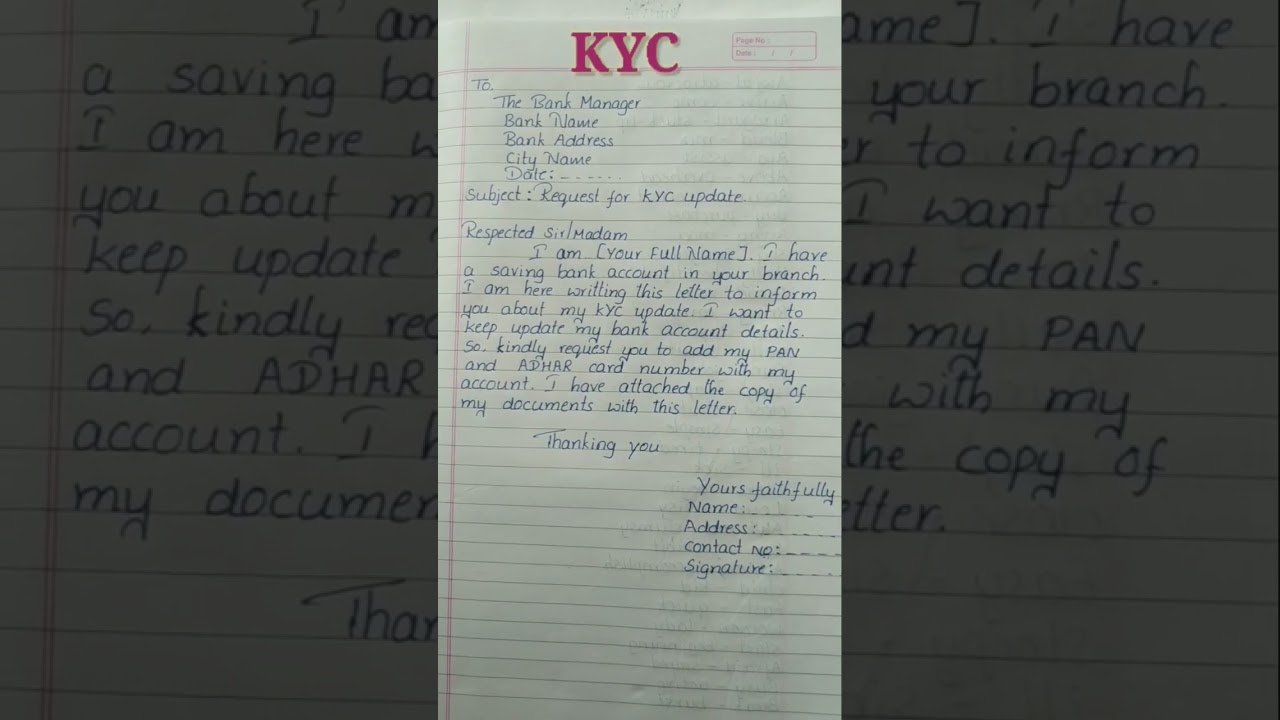 KYC
Page No :
Date : / /
To,
The Bank Manager
Bank Name
Bank Address
City Name
Date: - - - - - -
Subject : Request for KYC update.
Respected Sir/Madam
I am [Your Full Name]. I have
a saving bank account in your branch.
I am here writting this letter to inform
you about my KYC update. I want to
keep update my bank account details.
So, kindly request you to add my PAN
and ADHAR card number with my
account. I have attached the copy of
my documents with this letter.
Thanking you
Yours faithfully
Name: - - - - -
Address: - - - - -
Contact No: - - - -
Signature: - - - -